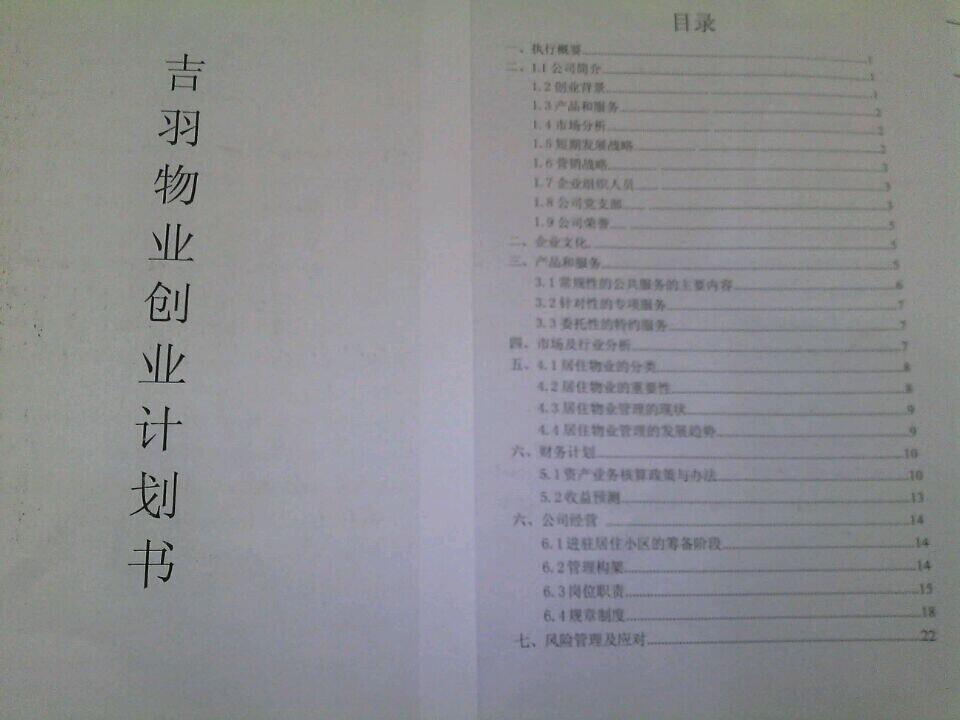 吉羽物业创业计划书
目录
一、执行概要 1
二、1.1 公司简介 1
1.2 创业背景 1
1.3 产品和服务 2
1.4 市场分析 2
1.5 短期发展战略 2
1.6 营销战略 3
1.7 企业组织人员 3
1.8 公司党支部 3
1.9 公司荣誉 5
二、企业文化 5
三、产品和服务 5
3.1 常规性的公共服务的主要内容 6
3.2 针对性的专项服务 7
3.3 委托性的特约服务 7
四、市场及行业分析 7
五、4.1 居住物业的分类 8
4.2 居住物业的重要性 8
4.3 居住物业管理的现状 9
4.4 居住物业管理的发展趋势 9
六、财务计划 10
5.1 资产业务核算政策与办法 10
5.2 收益预测 13
六、公司经营 14
6.1 进驻居住小区的筹备阶段 14
6.2 管理构架 14
6.3 岗位职责 15
6.4 规章制度 18
七、风险管理及应对 22